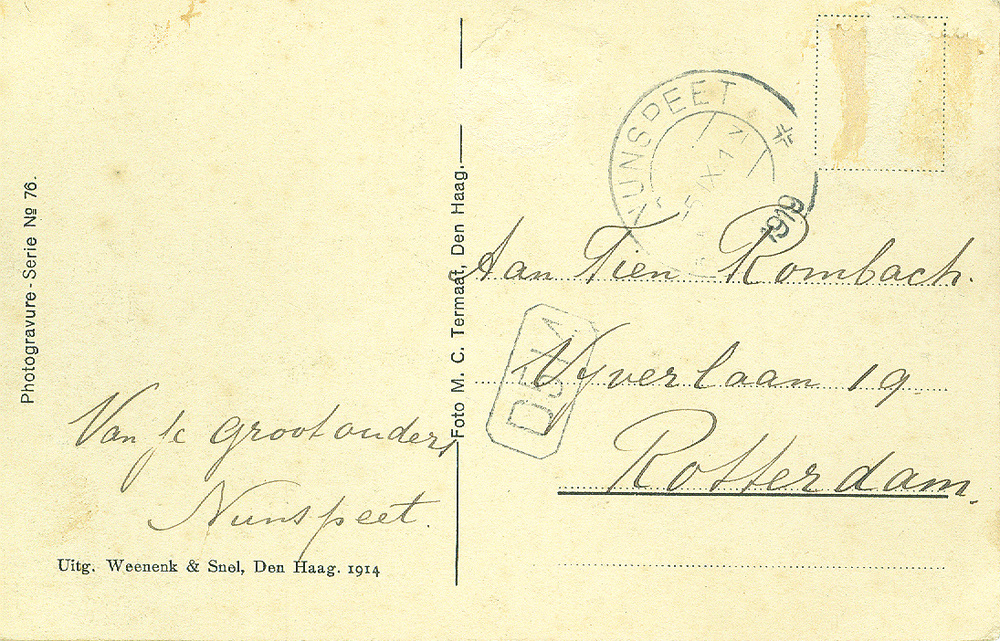 Photogravure - Serie № 76.
Van je grootouders
Nunspeet.
Uitg. Weenenk & Snel, Den Haag. 1914
Foto M. C. Termaat, Den Haag.
NUNSPEET
1919
Aan Tien Rombach.
Vyverlaan 19
Rotterdam.